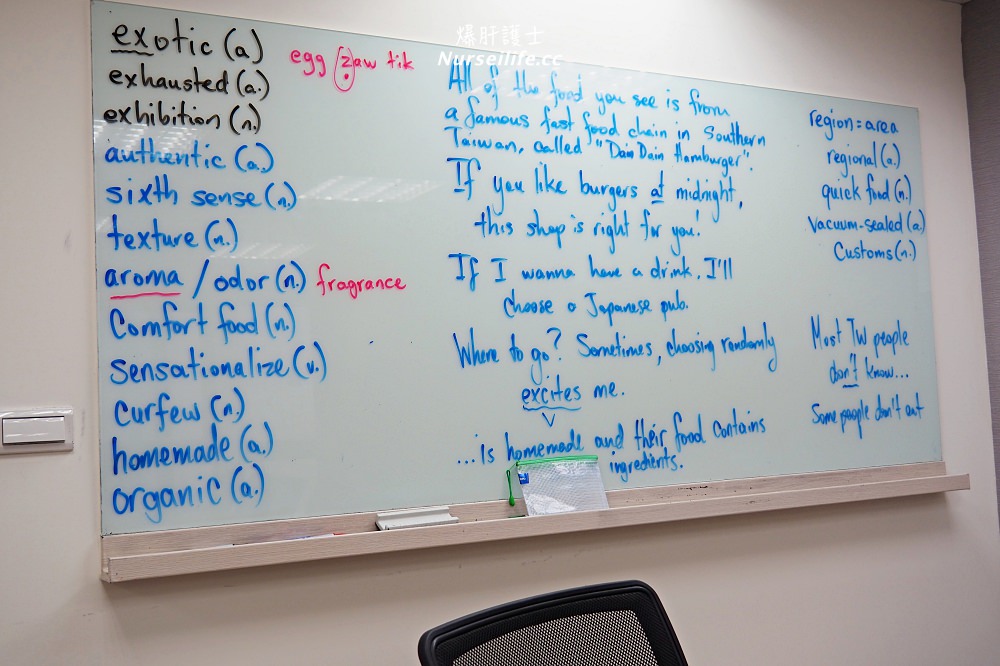 爆肝護士
Nurseilife.cc
exotic (a)
egg zaw tik
exhausted (a.)
exhibition (n.)
authentic (a.)
sixth sense (n.)
texture (n.)
aroma / odor (n.) fragrance
Comfort food (n.)
Sensationalize (v.)
Curfew (n.)
homemade (a.)
organic (a.)
All of the food you see is from
a famous fast food chain in Southern
Taiwan, called "Dain Dain Hamburger".
If you like burgers at midnight,
this shop is right for you!
If I wanna have a drink, I'll
choose a Japanese pub.
Where to go? Sometimes, choosing randomly
excites me.
...is homemade and their food contains
ingredients.
region = area
regional (a.)
quick food (n.)
Vacuum-sealed (a.)
Customs (n.)
Most TW people
don't know...
Some people don't eat